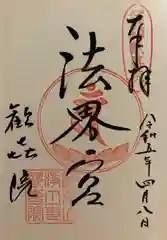 奉拝
令和五年四月八日
法界宮
歡㐂院